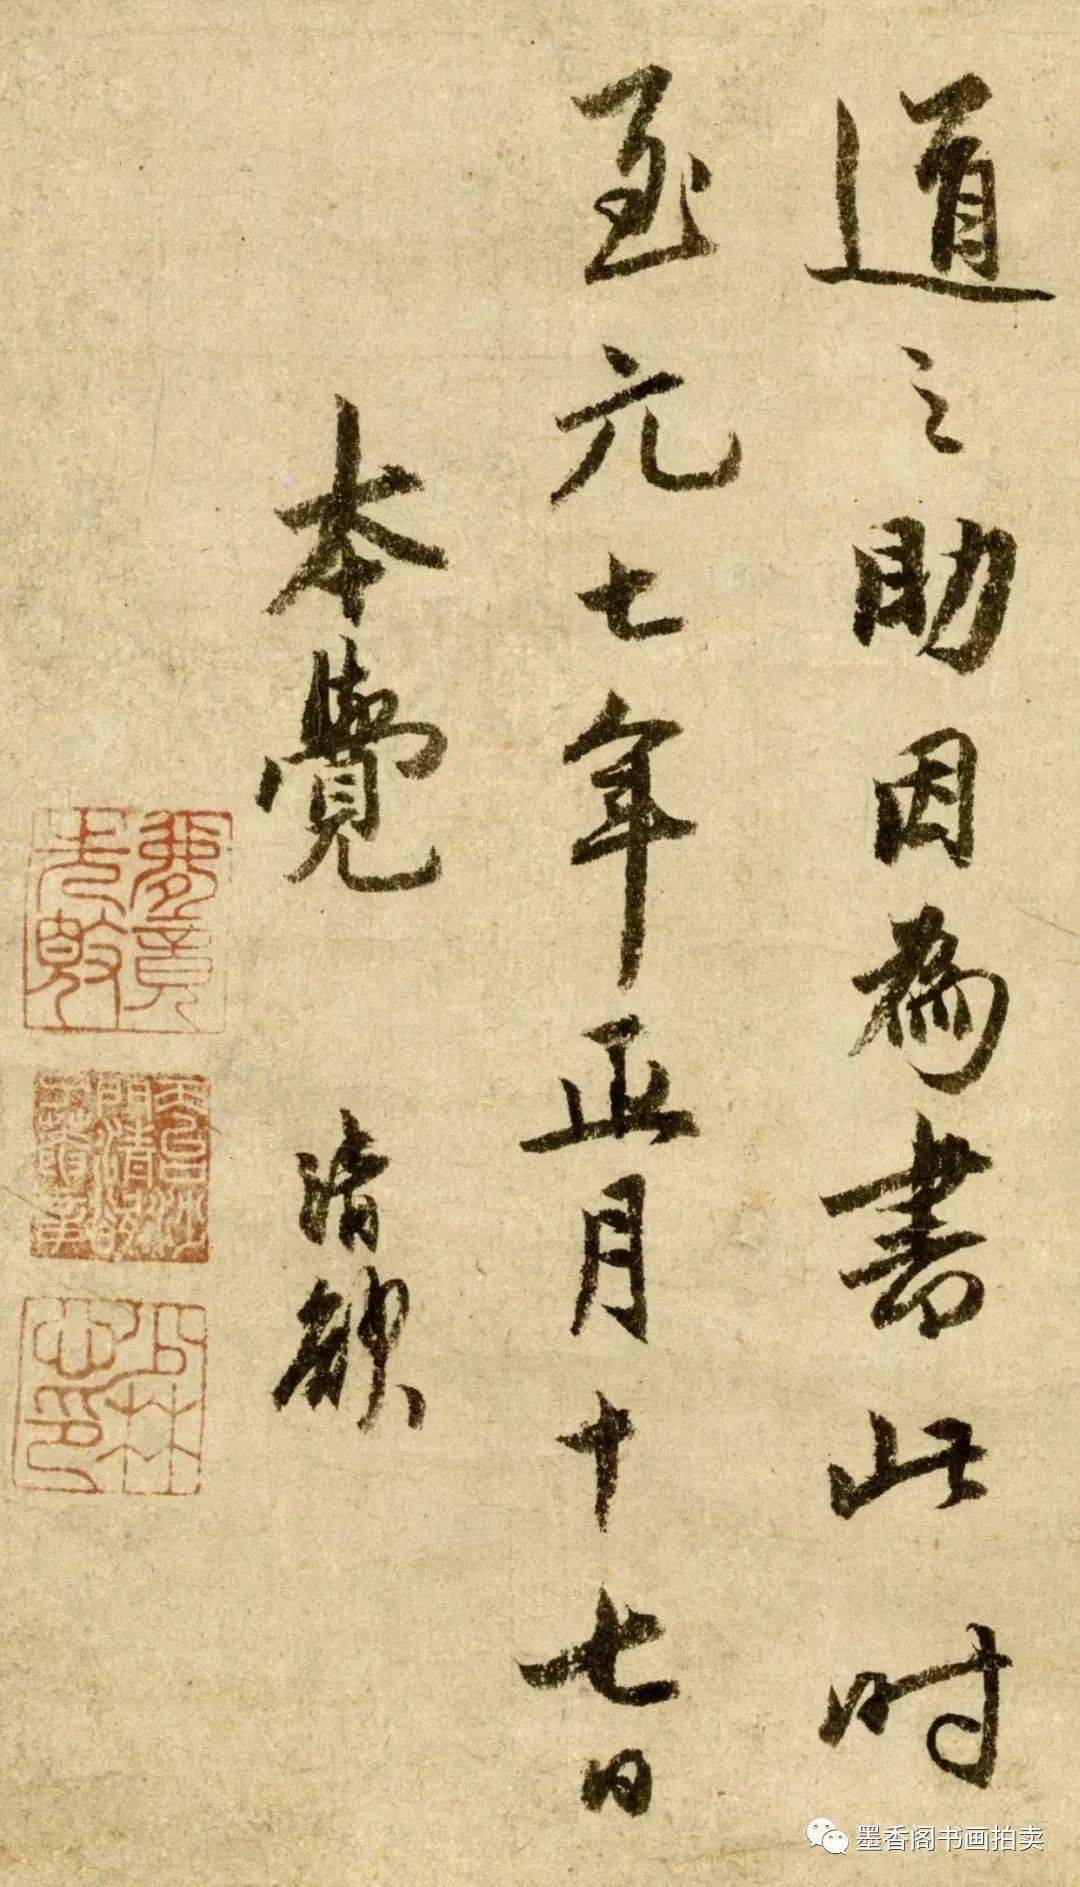 道之助因為書此时
至元七年正月十七日
本覺 清欲
墨香阁书画拍卖